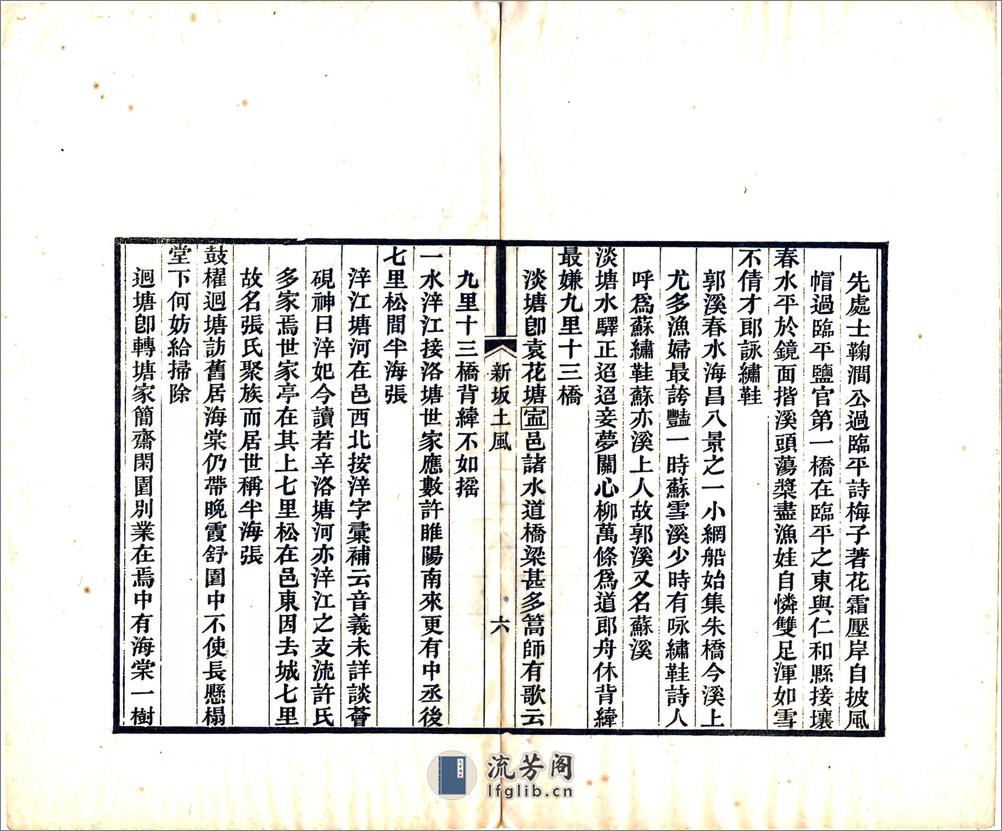 先處士鞠澗公過臨平詩梅子著花霜壓岸自披風
帽過臨平鹽官第一橋在臨平之東與仁和縣接壤
春水平於鏡面揩溪頭蕩槳盡漁娃自憐雙足渾如雪
不倩才郎詠繡鞋
郭溪春水海昌八景之一小網船始集朱橋今溪上
尤多漁婦最誇豔一時蘇雪溪少時有咏繡鞋詩人
呼爲蘇繡鞋蘇亦溪上人故郭溪又名蘇溪
淡塘水驛正迢迢妾夢關心柳萬條爲道郎舟休背緯
最嫌九里十三橋
淡塘卽袁花塘寍邑諸水道橋梁甚多篙師有歌云
新坂土風
六
九里十三橋背緯不如摇
一水淬江接洛塘世家應數許睢陽南來更有中丞後
七里松間半海張
淬江塘河在邑西北按淬字彙補云音義未詳談薈
硯神日淬妃今讀若辛洛塘河亦淬江之支流許氏
多家焉世家亭在其上七里松在邑東因去城七里
故名張氏聚族而居世稱半海張
鼓櫂迴塘訪舊居海棠仍帶晚霞舒園中不使長懸榻
堂下何妨給掃除
迴塘卽轉塘家簡齋閑園別業在焉中有海棠一樹
流芳阁
lfglib.cn